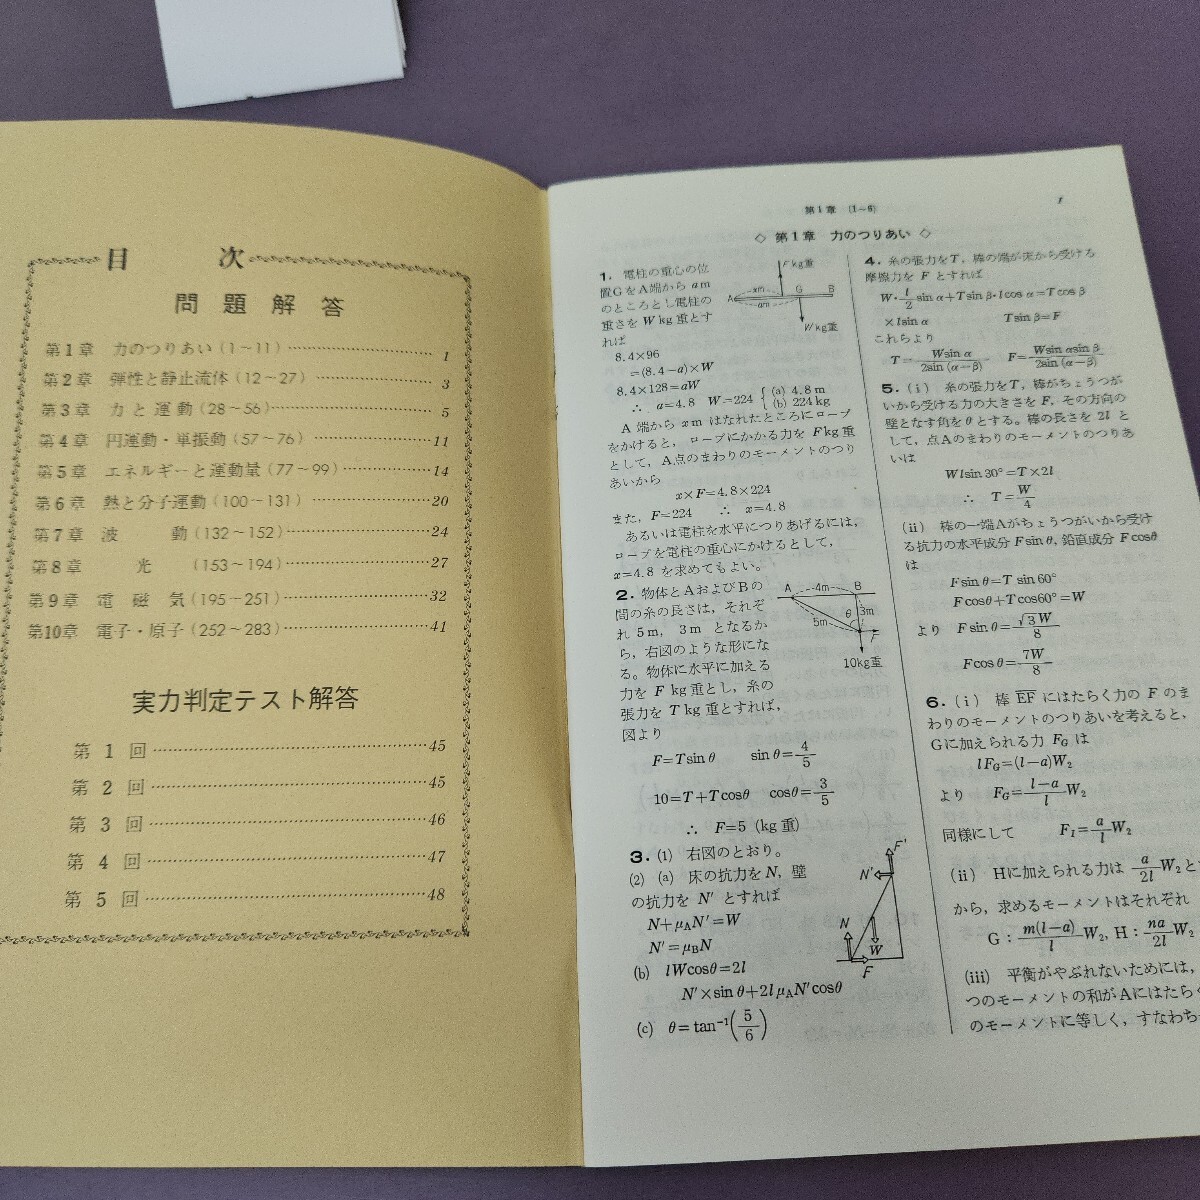 目次
問題解答
第1章 力のつりあい(1～11)…………………… 1
第2章 弾性と静止流体(12～27)……………… 3
第3章 力と運動(28～56)……………………… 5
第4章 円運動・単振動(57～76)………………11
第5章 エネルギーと運動量(77～99)…………14
第6章 熱と分子運動(100－131)………………20
第7章 波動(132～152)…………………………24
第8章 光(153～194)……………………………27
第9章 電磁気(195－251)………………………32
第10章 電子・原子(252～283)…………………41
実力判定テスト解答
第1回……………………………45
第2回……………………………45
第3回……………………………46
第4回……………………………47
第5回……………………………48
第1章 (1～6) 1
◇ 第1章 力のつりあい ◇
1. 電柱の重心の位
置GをA端から am
のところとし電柱の
重さを W kg重とす
れば
F kg重
xm
G
B
A
am
W kg重
8.4×96
=(8.4−a)×W
8.4×128=aW
∴ a=4.8 W=224 { (a) 4.8 m
(b) 224 kg
A 端から xm はなれたところにロープ
をかけると，ロープにかかる力を F kg重
として，A点のまわりのモーメントのつり
あいから
x×F=4.8×224
また，F=224 ∴ x=4.8
あるいは電柱を水平につりあげるには，
ロープを電柱の重心にかけるとして，
x=4.8 を求めてもよい。
2. 物体とAおよびBの
間の糸の長さは，それぞ
れ 5m，3m となるか
ら，右図のような形にな
る。物体に水平に加える
力を F kg重とし，糸の
張力を T kg重とすれば，
図より
A
4m
B
θ
3m
5m
F
10kg重
F=T sin θ sin θ=4/5
10=T+T cosθ cosθ=3/5
∴ F=5 (kg重)
3. (1) 右図のとおり。
(2) (a) 床の抗力を N，壁
の抗力を N′ とすれば
N+μAN′=W
N′=μBN
(b) lWcosθ=2l
N′×sin θ+2l μAN′cosθ
(c) θ=tan⁻¹(5/6)
F′
N′
N
W
F
4. 糸の張力を T，棒の端が床から受ける
摩擦力を F とすれば
W・l/2 sin α+T sin β・l cos α=T cos β
×l sin α T sin β=F
これらより
T=W sin α/2sin (α−β) F=W sin α sin β/2sin (α−β)
5. (i) 糸の張力を T，棒がちょうつが
いから受ける力の大きさを F，その方向の
壁となす角を θ とする。棒の長さを 2l と
して，点Aのまわりのモーメントのつりあ
いは
Wl sin 30°=T×2l
∴ T=W/4
(ii) 棒の一端Aがちょうつがいから受け
る抗力の水平成分 F sin θ，鉛直成分 F cos θ
は
F sin θ=T sin 60°
F cos θ+T cos 60°=W
より F sin θ=√3 W/8
F cos θ=7W/8
6. (i) 棒 EF にはたらく力の F のま
わりのモーメントのつりあいを考えると，
Gに加えられる力 FG は
lFG=(l−a)W2
より FG=l−a/l W2
同様にして FI=a/l W2
(ii) Hに加えられる力は a/2l W2と
から，求めるモーメントはそれぞれ
G：m(l−a)/l W2, H：na/2l W2
(iii) 平衡がやぶれないためには，
つのモーメントの和がAにはたらく
のモーメントに等しく，すなわち